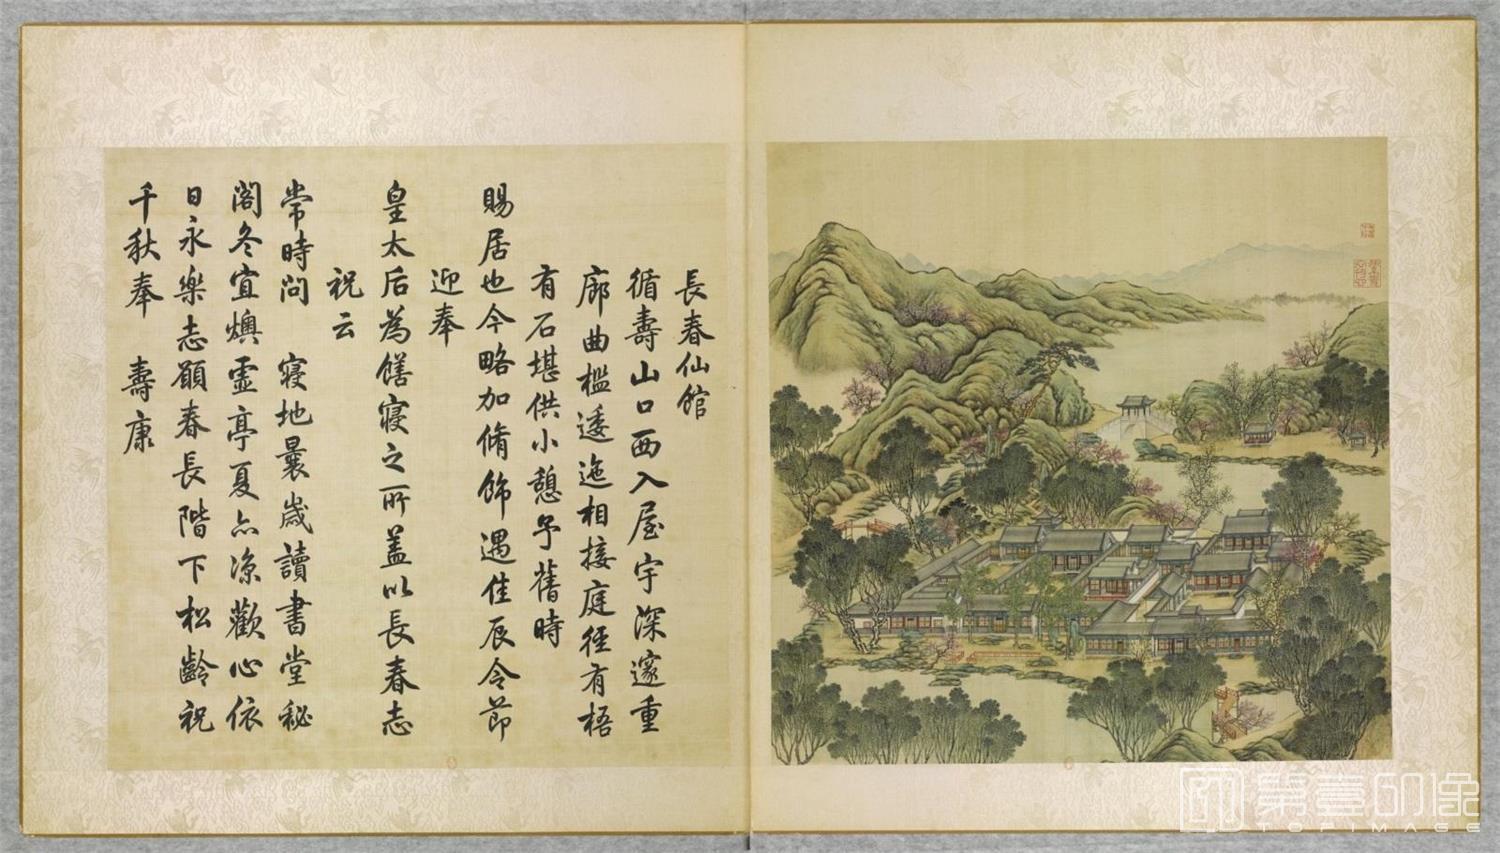 長春仙館
循壽山口西入屋宇深邃重
廊曲檻逶迤相接庭徑有梧
有石堪供小憩予舊時
賜居也今略加脩飾遇佳辰令節
迎奉
皇太后為饍寢之所蓋以長春志
祝云
常時問寢地曩歲讀書堂秘
閣冬宜燠靈亭夏亦涼歡心依
日永樂志願春長階下松齡祝
千秋奉壽康
第壹印像
TOPIMAGE